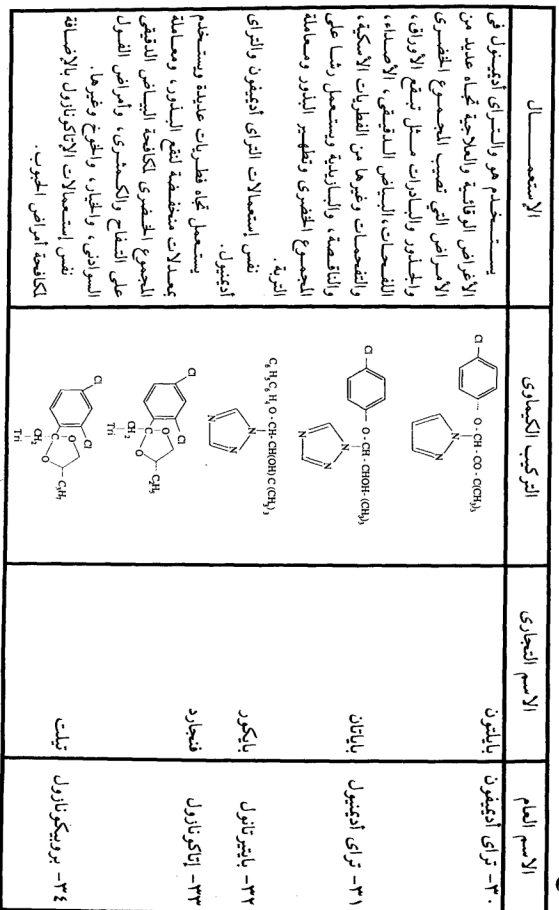 الاسم العام
الاسم التجارى
التركيب الكيماوى
الإستعمـــــال
٣٠- تراى أديمفون
بايلتون
Cl
O - CH - CO - C(CH₃)₃
N
N
يستخدم هو والتراى أديمنول فى
الأغراض الوقائية والعلاجية تجاه عديد من
الأمراض التى تصيب المجموع الخضرى
والجذور والبادرات مثل تبقع الأوراق،
اللفحات، البياض الدقيقى، الأصداء،
والتفحمات وغيرها من الفطريات الأسكية،
والناقصة، والبازيدية ويستعمل رشا على
المجموع الخضرى وتطهير البذور ومعاملة
التربة.
٣١- تراى أديمنيول
باياتان
Cl
O - CH - CHOH- (CH₃)₃
N
N
N
نفس إستعمالات التراى أديمفون والتراى
أديمنيول.
٣٢- بايتيرتانول
بايكور
C₆ H₅C₆ H₄ O - CH- CH(OH) C (CH₃)₃
N
N
N
٣٣- إتاكونازول
فنجارد
Cl
Cl
C
O
O
CH₂
Tri
C₂H₅
يستعمل تجاه فطريات عديدة ويستخدم
بمعدلات منخفضة لنقع البذور، ومعاملة
المجموع الخضرى لمكافحة البياض الدقيقى
على التفاح والكمثرى، وأمراض الفول
السوادنى، والخيار، والخوخ وغيرها.
٣٤- بروبيكونازول
تيلت
Cl
Cl
C
O
O
CH₂
Tri
C₃H₇
نفس إستعمالات الإتاكونازول بالإضافة
لمكافحة أمراض الحبوب.